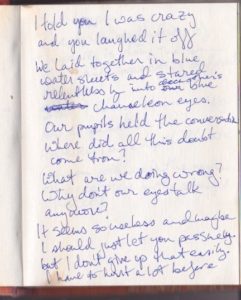 I told you I was crazy
and you laughed it off
We laid together in blue
water sheets and stared
relentlessly into each other's blue
chameleon eyes.
Our pupils held the conversation
Where did all this doubt
come from?
What are we doing wrong?
Why don't our eyes talk
anymore?
It seems so useless and maybe
I should just let you pass by.
but I don't give up that easily.
I have to hurt a lot before